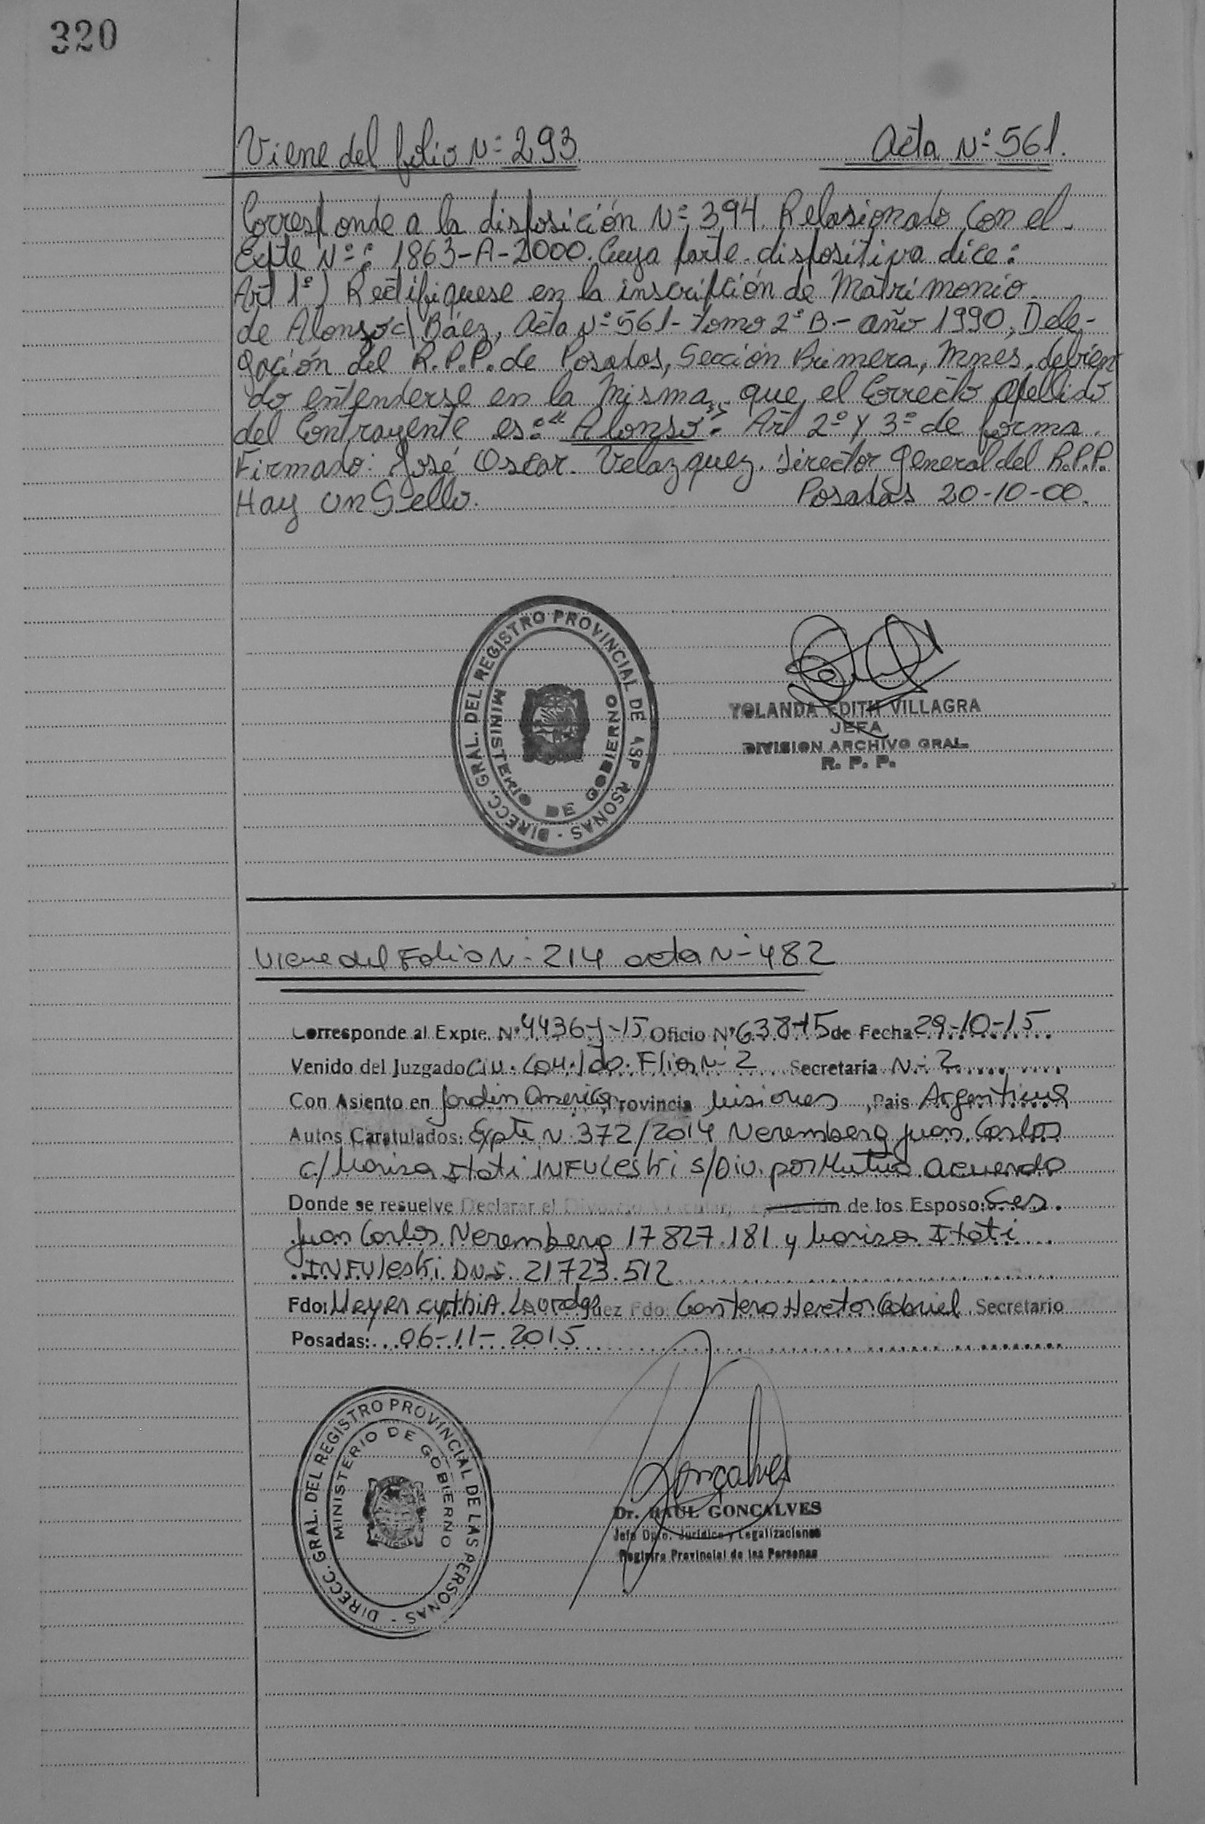 320
Viene del folio Nº 293 Acta Nº 561.
Corresponde a la disposición Nº 394. Relasionado con el
Expte Nº: 1863-A-2000. Cuya parte dispositiva dice:
Art 1º) Rectifiquese en la inscripción de Matrimonio
de Alonzo c/ Báez, Acta Nº 561- tomo 2º B- año 1990, Dele-
gación del R.P.P. de Posadas, Sección Primera, Mnes, debien
do entenderse en la misma, que el Correcto apellido
del Contrayente es: "Alonso". Art 2º y 3º de forma.
Firmado: José Oscar Velazquez. Director General del R.P.P.
Hay un Sello. Posadas 20-10-00.
DIRECC. GRAL. DEL REGISTRO PROVINCIAL DE LAS PERSONAS
MINISTERIO DE GOBIERNO
YOLANDA EDITH VILLAGRA
JEFA
DIVISION ARCHIVO GRAL.
R. P. P.
Viene del Folio Nº 214 acta Nº 482
Corresponde al Expte. Nº 4436-J-15 Oficio Nº 638-15 de Fecha 29-10-15
Venido del Juzgado Civ. Com. Flia Nº 2 Secretaría Nº 2
Con Asiento en Jardin America Provincia Misiones, Pais Argentina
Autos Caratulados: Expte Nº 372/2014 Neremberg Juan Carlos
c/ Marisa Itati INFULESKI S/Div. por Mutuo acuerdo
Donde se resuelve Declarar el Divorcio Vincular, de los Esposo: Ges.
Juan Carlos Neremberg 17827.181 y Marisa Itati
INFULESKI D.N.I. 21723.512
Fdo: Meyer Cynthia Lourdes Juez Fdo: Cantero Hector Gabriel Secretario
Posadas: 06-11-2015
DIRECC. GRAL. DEL REGISTRO PROVINCIAL DE LAS PERSONAS
MINISTERIO DE GOBIERNO
Gonçalves
Dr. RAUL GONCALVES
Jefe Dpto. Jurídico y Legalizaciones
Registro Provincial de las Personas